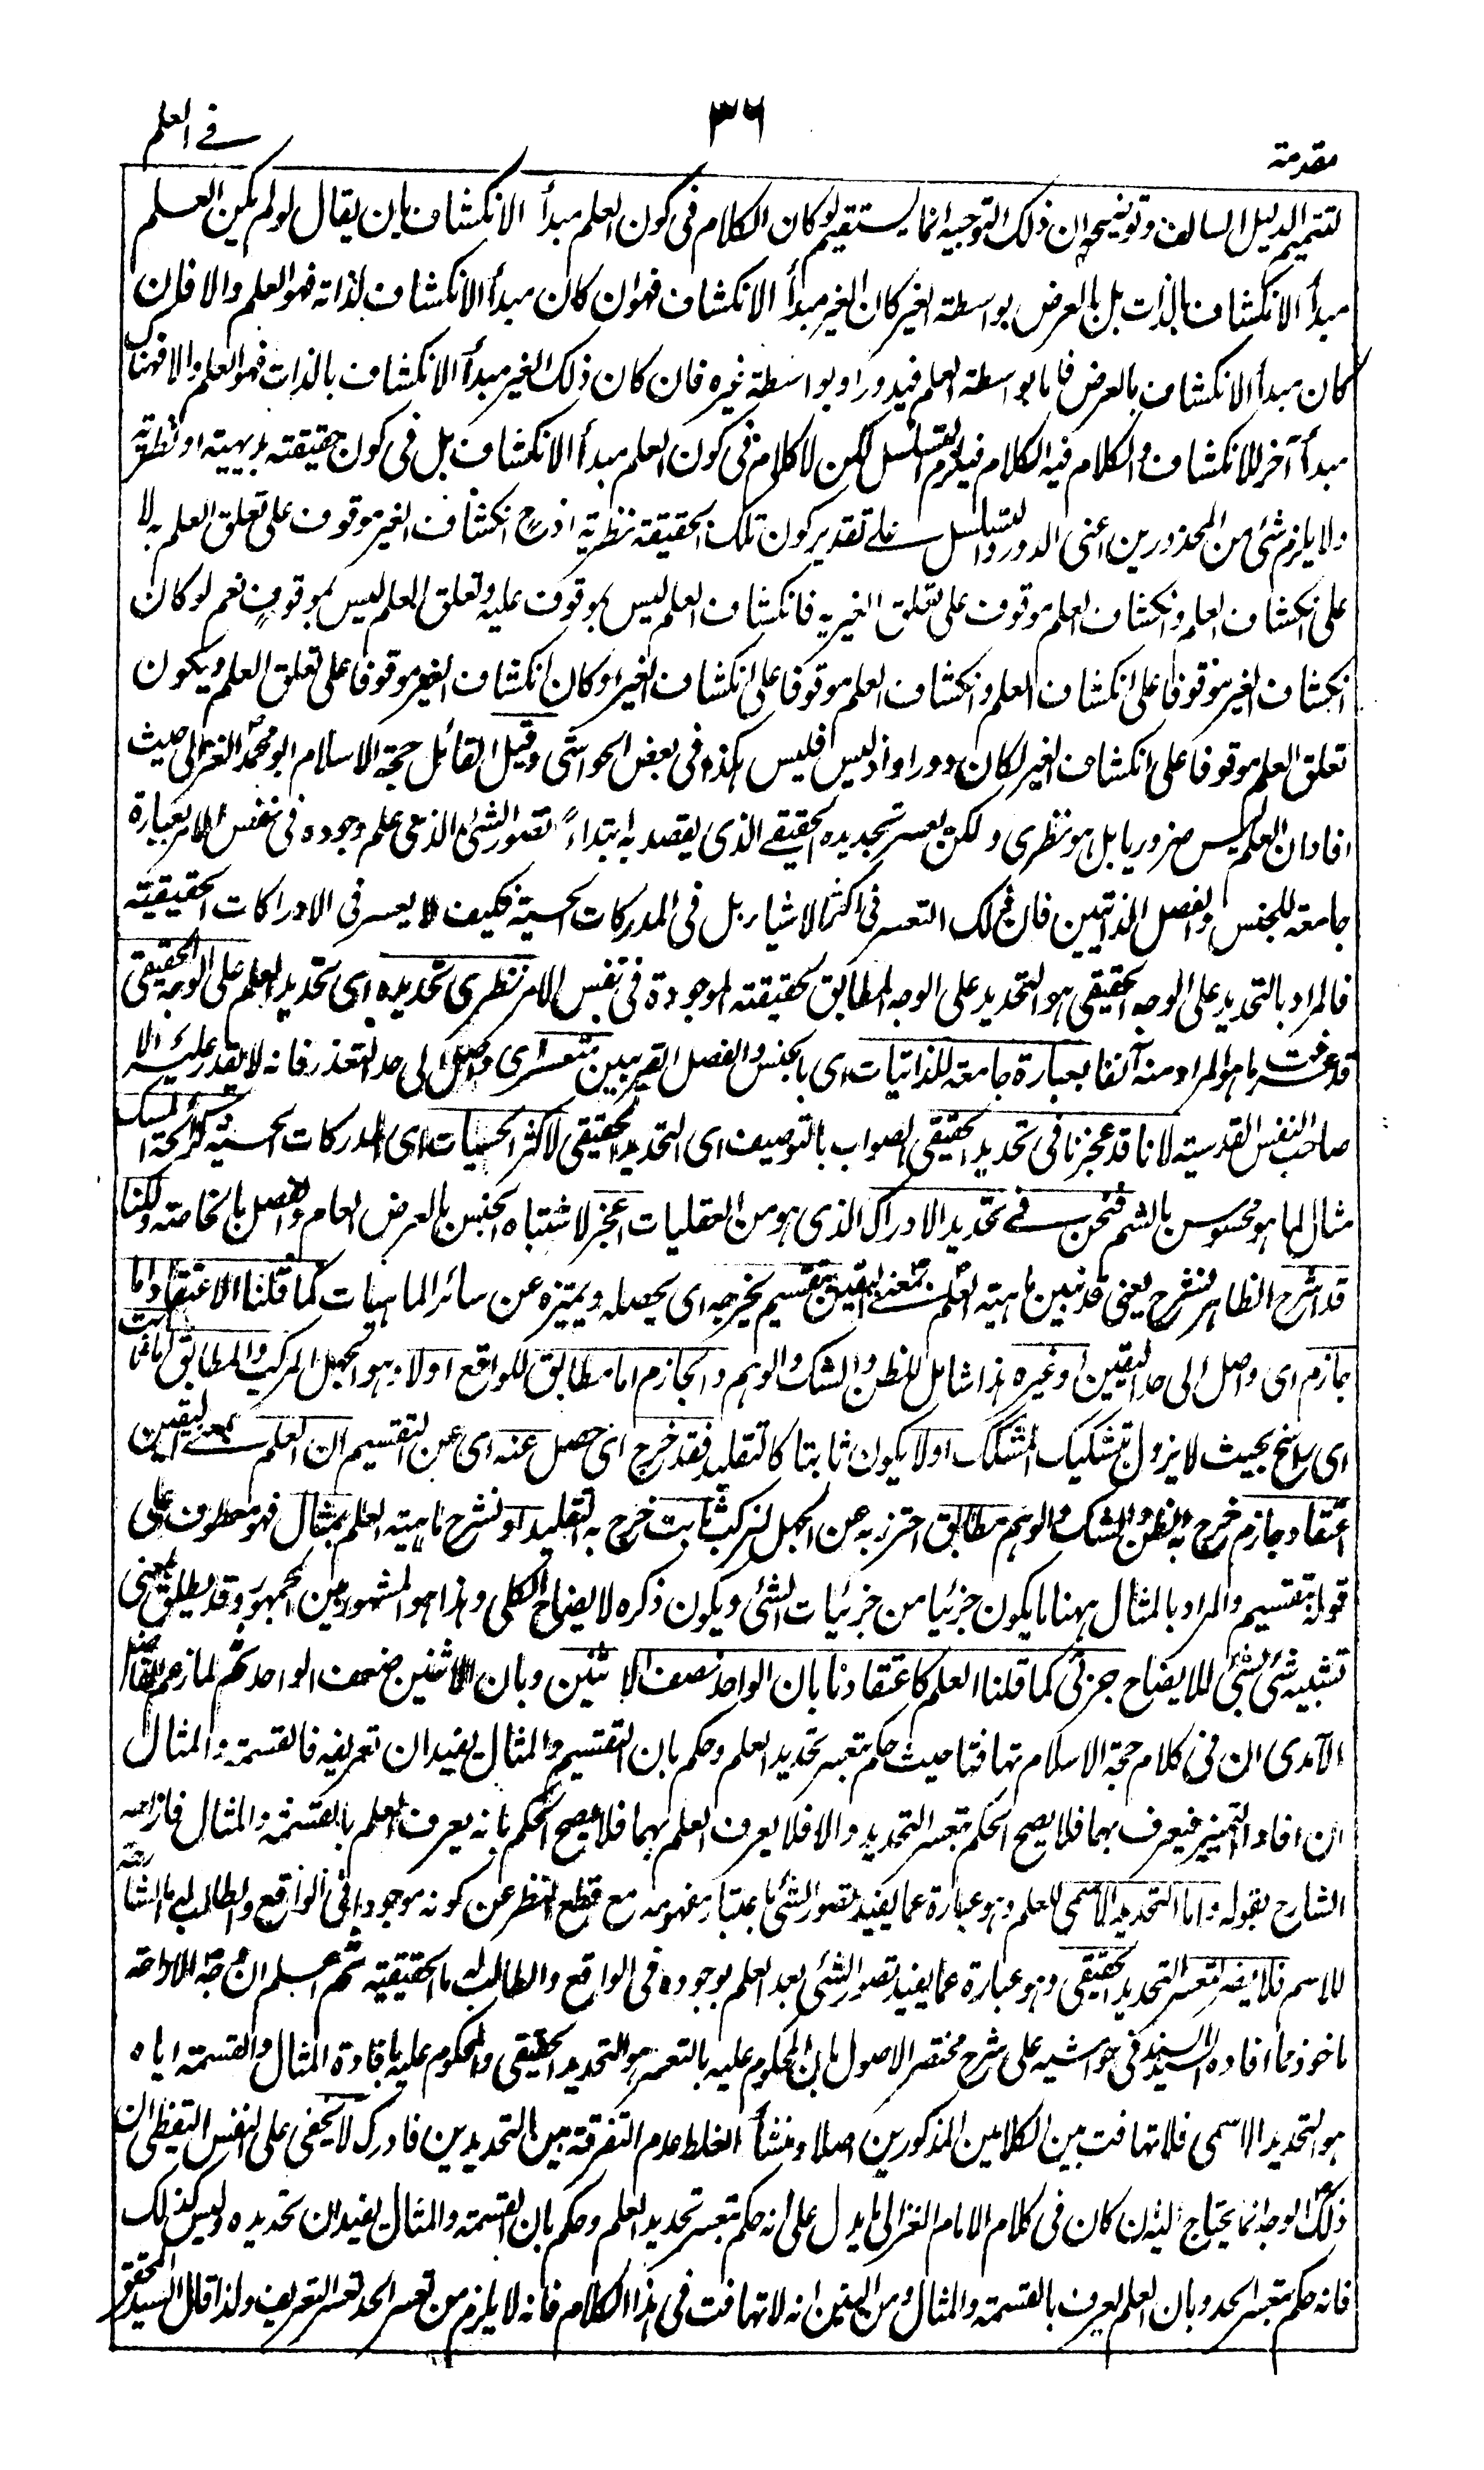 مقدمة
٣٦
في العلم
لتتميم الدليل السالف وتوضيحه ان ذلك التوجيه انما يستقيم لو كان الكلام فى كون العلم مبدأ الانكشاف بان يقال لو لم يكن العلم
مبدأ الانكشاف بالذات بل بالعرض بواسطة الغير كان الغير مبدأ الانكشاف فهو ان كان مبدأ الانكشاف لذاته فهو العلم والا فان
كان مبدأ الانكشاف بالعرض فاما بواسطة العلم فيدور او بواسطة غيره فان كان ذلك الغير مبدأ الانكشاف بالذات فهو العلم والا فهناك
مبدأ آخر للانكشاف والكلام فيه الكلام فيلزم التسلسل لكن لا كلام فى كون العلم مبدأ الانكشاف بل فى كون حقيقته بديهية او نظرية
ولا يلزم شئ من المحذورين اعنى الدور والتسلسل على تقدير كون تلك الحقيقة نظرية اذ ح انكشاف الغير موقوف على تعلق العلم به لا
على انكشاف العلم وانكشاف العلم موقوف على تعلق الغير به فانكشاف العلم ليس بموقوف عليه وتعلق العلم ليس بموقوف نعم لو كان
انكشاف الغير موقوفا على انكشاف العلم وانكشاف العلم موقوفا على انكشاف الغير او كان انكشاف الغير موقوفا على تعلق العلم ويكون
تعلق العلم موقوفا على انكشاف الغير لكان دورا واذ ليس فليس هكذا فى بعض الحواشى وقيل القائل حجة الاسلام ابو محمد الغزالى حيث
افاد ان العلم ليس ضروريا بل هو نظرى ولكن يعسر تحديده الحقيقے الذى يقصد به ابتداءً تصور الشئ الذى علم وجوده فى نفس الامر بعبارة
جامعة للجنس والفصل الذاتيين فان ذلك التعسر فى اكثر الاشياء بل فى المدركات الحسية فكيف لا يعسر فى الادراكات الحقيقية
فالمراد بالتحديد على الوجه الحقيقى هو التحديد على الوجه المطابق لحقيقته الموجودة فى نفس الامر نظرى تحديده اى تحديد العلم على الوجه الحقيقى
قد عرفت ما هو المراد منه آنفا بعبارة جامعة للذاتيات اى بالجنس والفصل القريبين متعسر اى واصل الى حد التعذر فانه لا يقدر عليه الا
صاحب النفس القدسية لانا قد عجزنا فى تحديد الحقيقى الصواب بالتوصيف اى التحديد الحقيقى لاكثر الحسيات اى المدركات الحسية كرائحة المسك
مثال لما هو محسوس بالشم فنحن فے تحديد الادراك الذى هو من العقليات اعجز لاشتباه الجنس بالعرض العام والفصل بالخاصة ولكنا
قد اشرح الظاهر نشرح يعنى قد نبين ماهية العلم بمعنے اليقين بتقسيم يخرجه اى يحصله ويميزه عن سائر الماهيات كما قلنا الاعتقاد اما
جازم اى واصل الى حد اليقين او غيره هذا شامل للظن والشك والوهم والجازم اما مطابق للواقع او لا وهو الجهل المركب والمطابق اما ثابت
اى راسخ بحيث لا يزول بتشكيك المشكك او لا يكون ثابتا كالتقليد فقد خرج اى حصل عنه اى عن التقسيم ان العلم بمعنے اليقين
اعتقاد جازم خرج به الظن والشك والوهم مطابق احترز به عن الجهل المركب ثابت خرج به التقليد او نشرح ماهية العلم بمثال فهو معطوف على
قوله بتقسيم والمراد بالمثال ههنا ما يكون جزئيا من جزئيات الشئ ويكون ذكره لايضاح الكلى وهذا هو المشهور بين الجمهور وقد يطلق بمعنى
تشبيه شئ بشئ للايضاح جزئى كما قلنا العلم كاعتقادنا بان الواحد نصف الاثنين وبان الاثنين ضعف الواحد ثم لما زعم الفاضل
الآمدى ان فى كلام حجة الاسلام تهافتا حيث حكم بتعسر تحديد العلم وحكم بان التقسيم والمثال يفيدان تعريفه فالقسمة والمثال
ان افادا التمييز فيعرف بهما فلا يصح الحكم بتعسر التحديد والا فلا يعرف العلم بهما فلا يصح الحكم بانه يعرف العلم بالقسمة والمثال فازاحه
الشارح بقوله واما التحديد الاسمى للعلم وهو عبارة عما يفيد تصور الشئ باعتبار مفهومه مع قطع النظر عن كونه موجودا فى الواقع والطالب له ما الشارحة
للاسم فلا يضر تعسر التحديد الحقيقى وهو عبارة عما يفيد تصور الشئ بعد العلم بوجوده فى الواقع والطالب له ما الحقيقية ثم اعلم ان وجه الازاحة
ماخوذ مما افاده السيد السند فى حواشيه على شرح مختصر الاصول بان المحكوم عليه بالتعسر هو التحديد الحقيقى والمحكوم عليه بافادة المثال والقسمة اياه
هو التحديد الاسمى فلا تهافت بين الكلامين المذكورين اصلا ومنشأ الغلط عدم التفرقة بين التحديدين فادرك لا يخفى على النفس اليقظى ان
ذلك الوجه انما يحتاج اليه ان كان فى كلام الامام الغزالى ما يدل على انه حكم بتعسر تحديد العلم وحكم بان القسمة والمثال يفيدان تحديده وليس كذلك
فانه حكم بتعسر الحد وبان العلم يعرف بالقسمة والمثال ومن البين انه لا تهافت فى هذا الكلام فانه لا يلزم من تعسر الحد تعسر التعريف ولذا قال السيد المحقق